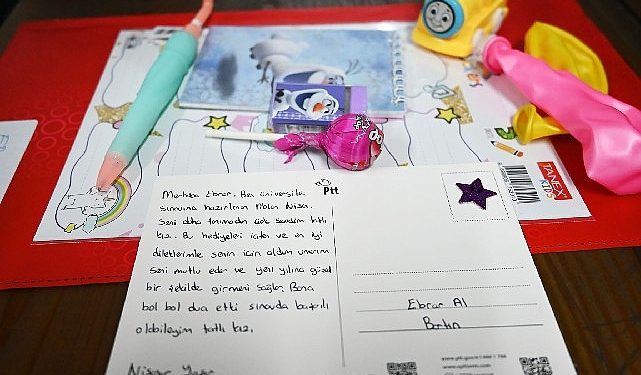 Ptt
Merhaba Ebrar. Ben üniversite
sınavına hazırlanan Ablan Nisa.
Seni daha tanımadan çok sevdim tatlı
kız. Bu hediyeleri içten ve en iyi
dileklerimle senin için aldım umarım
Seni mutlu eder ve yeni yılına güzel
bir şekilde girmeni sağlar. Bana
bol bol dua etti sınavda başarılı
olabileyim tatlı kız.
Ebrar Al
Bartın
TANEX
KIDS